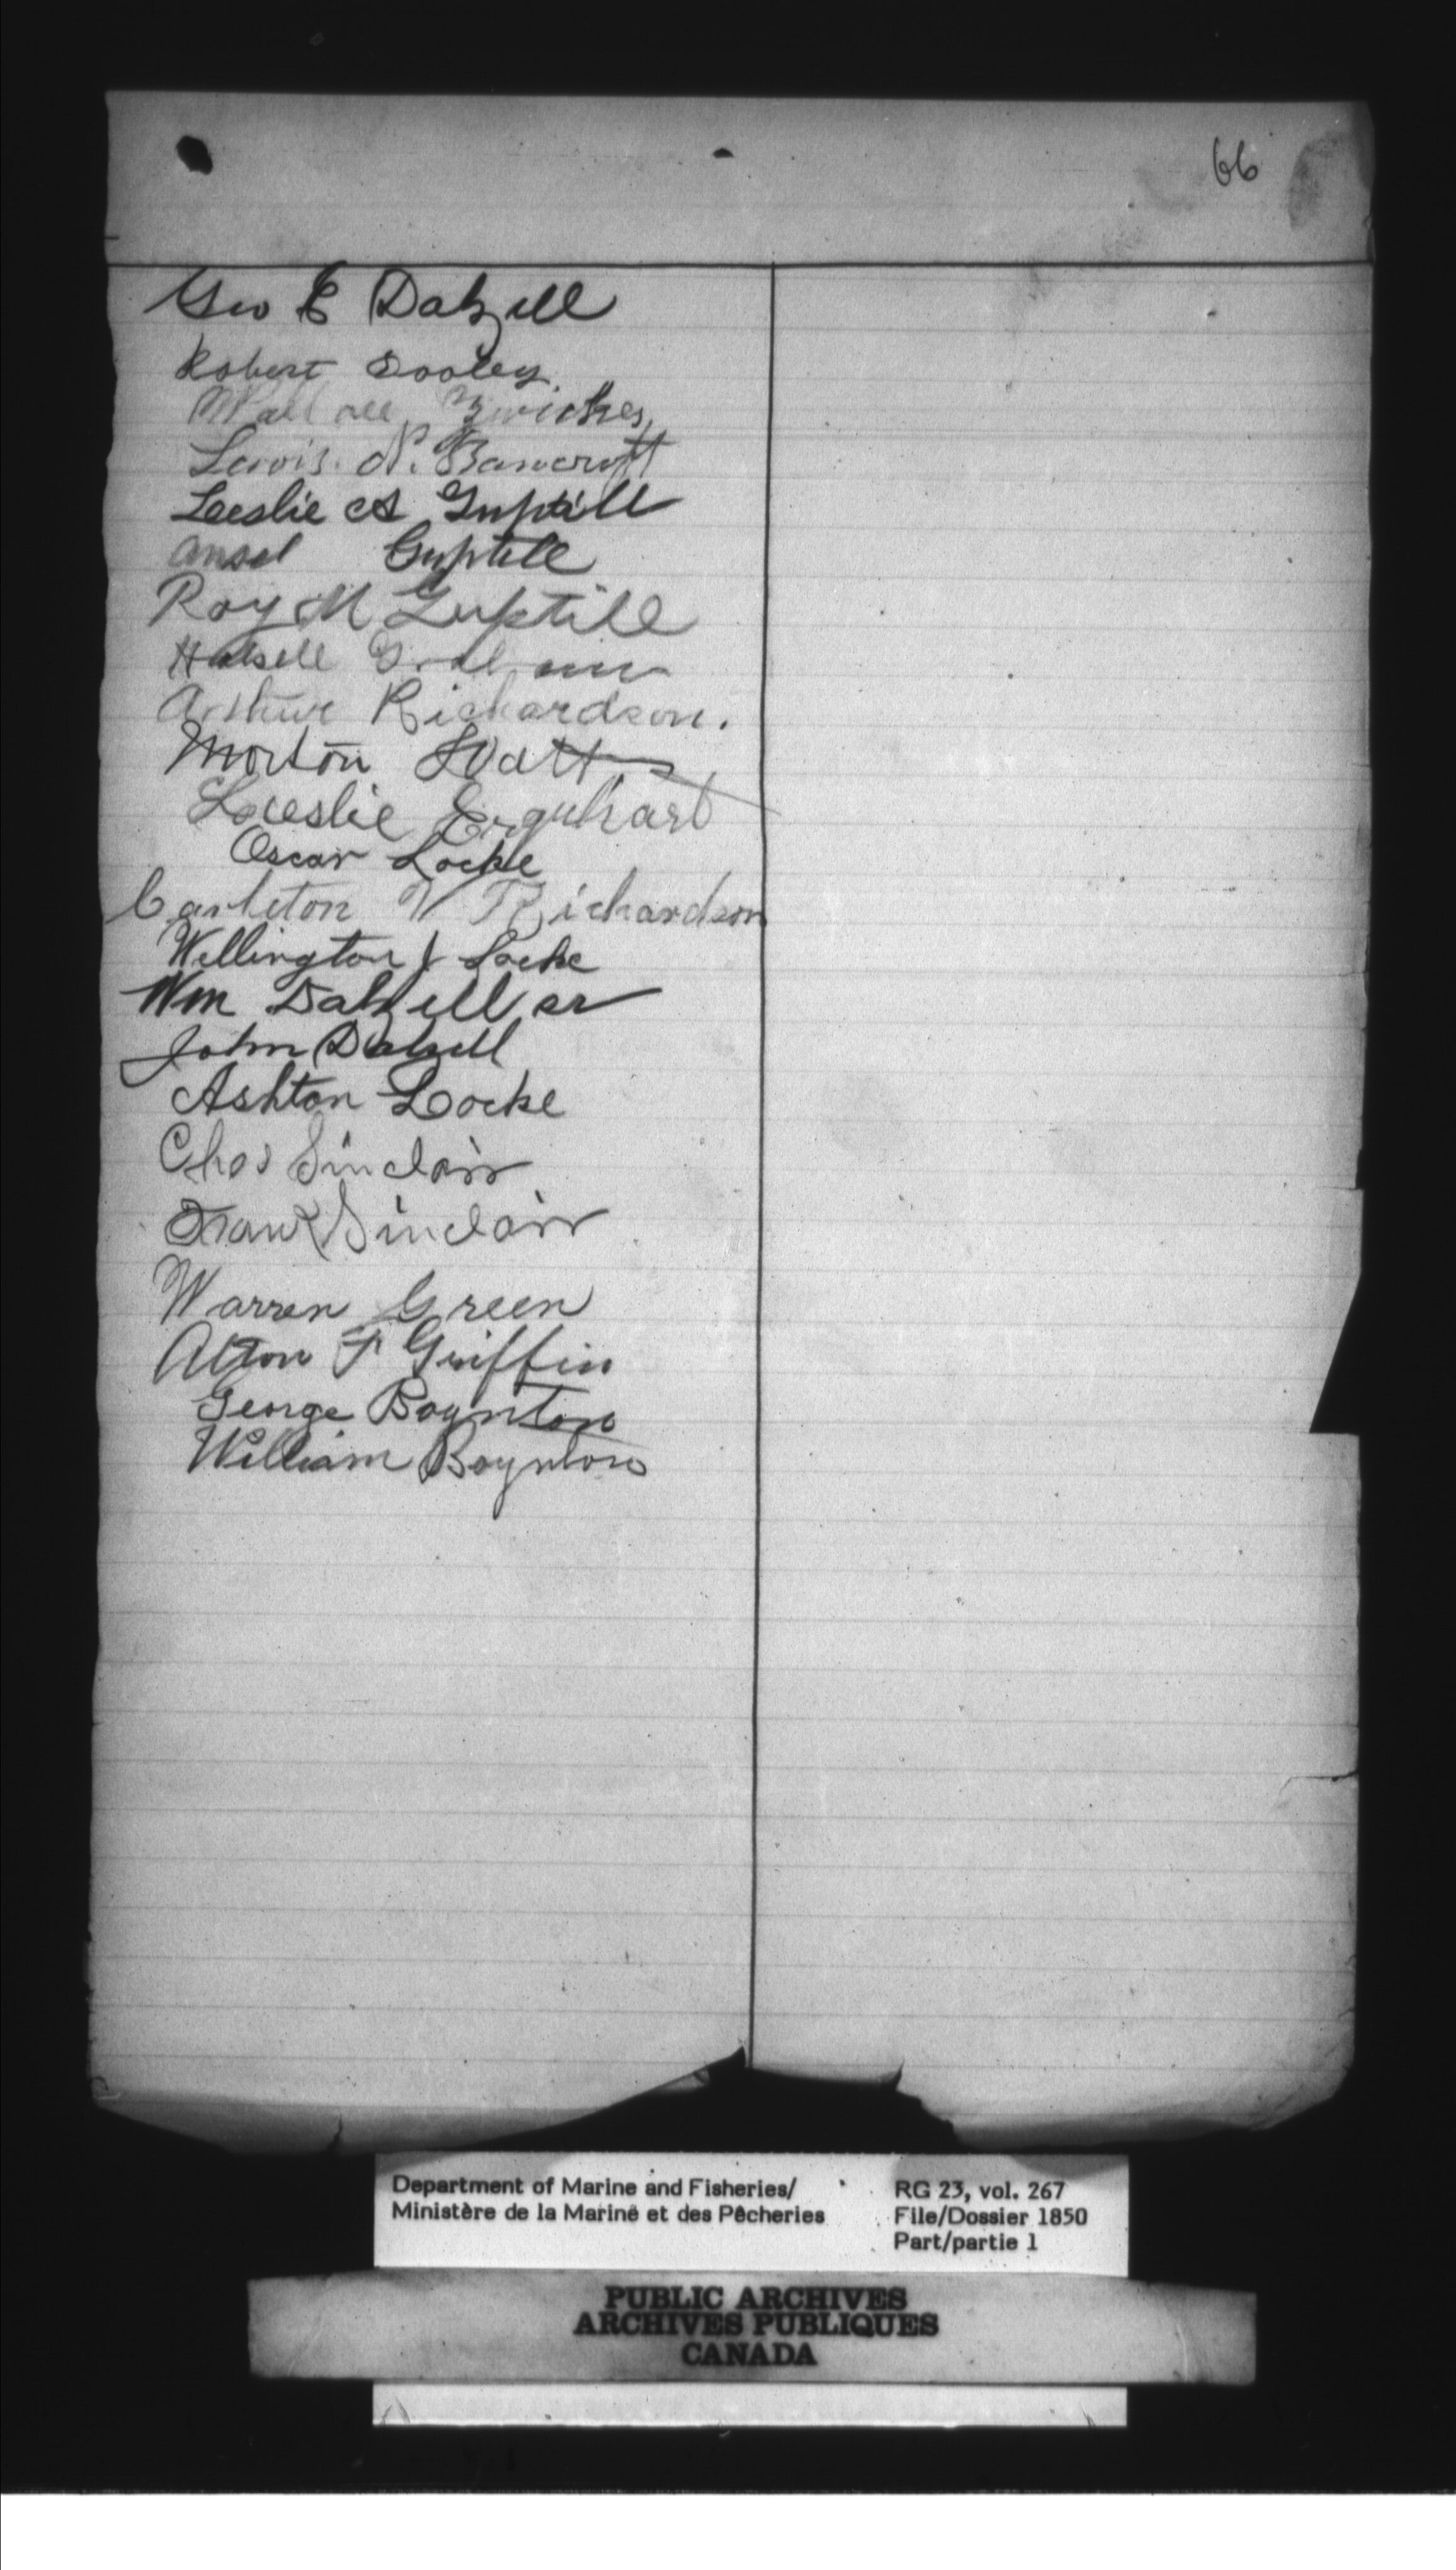 66
Geo E Dalzell
Robert Dooley
Wallace Zwicker
Lewis. N. Bancroft
Leeslie A Guptill
Ansel Guptill
Roy M Guptill
Hatsell
Arthur Richardson.
Morton Watts
Leeslie Erquhart
Oscar Locke
Carleton V Richardson
Wellington J Locke
Wm Dalzell sr
John Dalzell
Ashton Locke
Chas Sinclair
Frank Sinclair
Warren Green
Alton F Griffin
George Boynton
William Boynton
Department of Marine and Fisheries/ RG 23, vol. 267
Ministère de la Marine et des Pêcheries File/Dossier 1850
Part/partie 1
PUBLIC ARCHIVES
ARCHIVES PUBLIQUES
CANADA